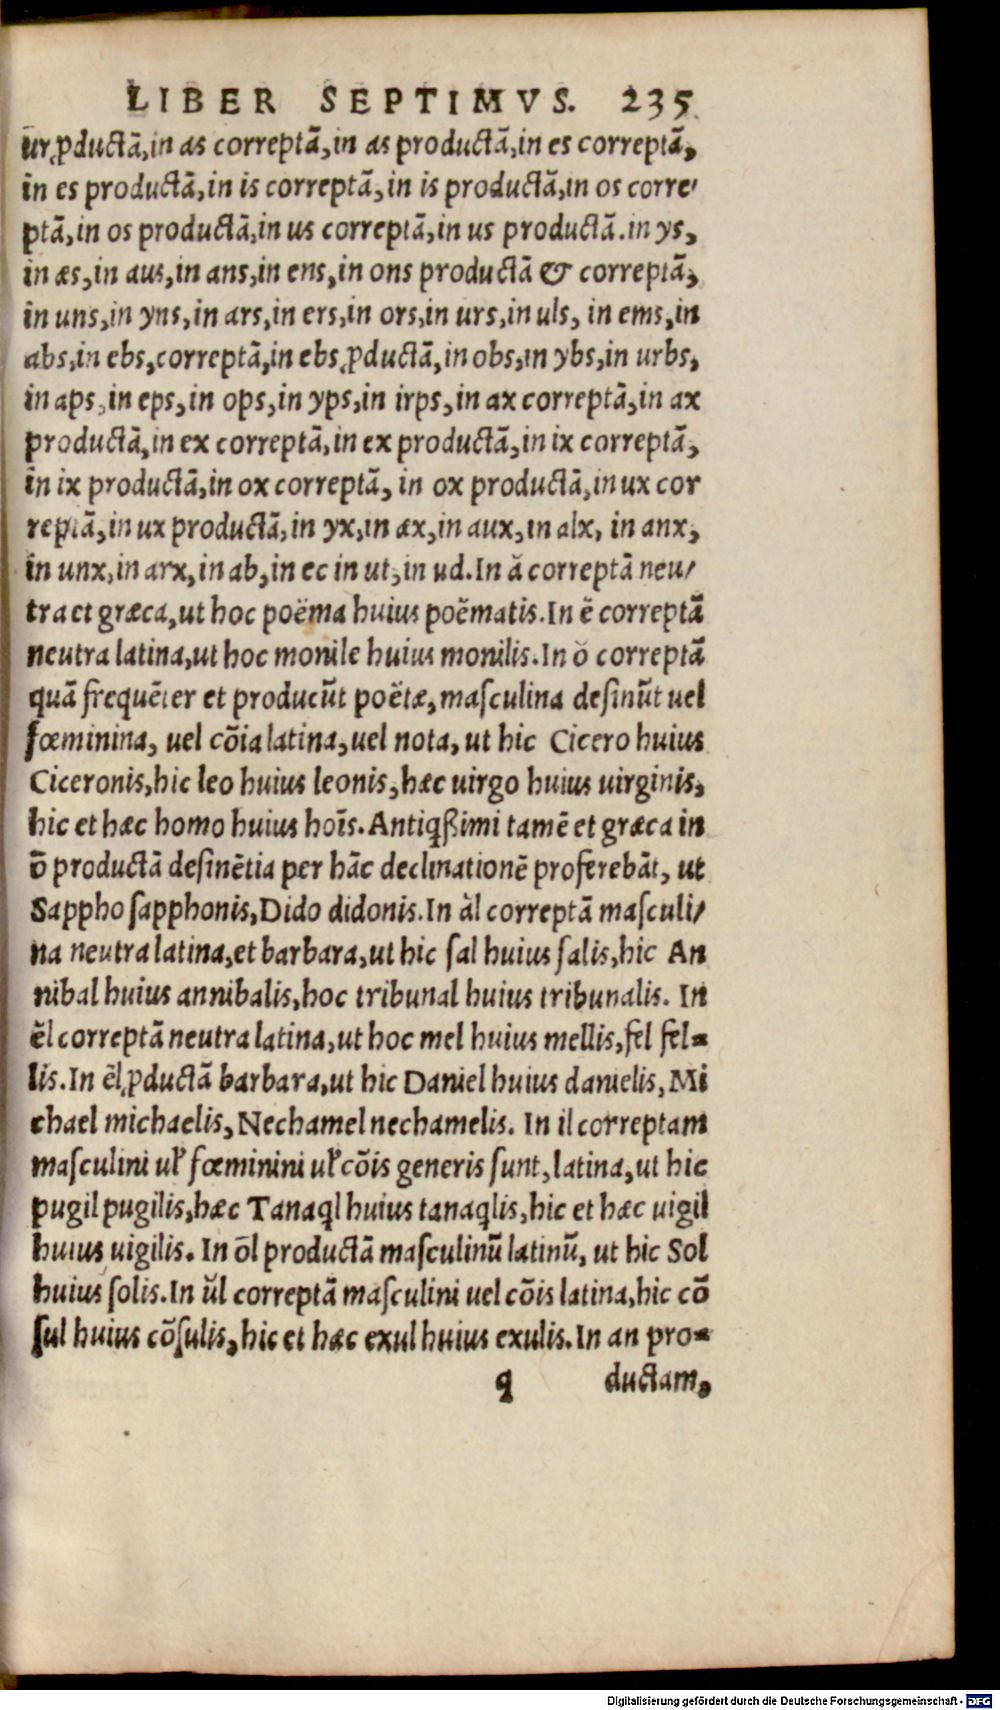 LIBER SEPTIMVS. 235
ur ꝓductã, in as correptã, in as productã, in es correptã,
in es productã, in is correptã, in is productã, in os corre/
ptã, in os productã, in us correptã, in us productã. in ys,
in æs, in aus, in ans, in ens, in ons productã & correptã,
in uns, in yns, in ars, in ers, in ors, in urs, in uls, in ems, in
abs, in ebs, correptã, in ebs ꝓductã, in obs, in ybs, in urbs,
in aps, in eps, in ops, in yps, in irps, in ax correptã, in ax
productã, in ex correptã, in ex productã, in ix correptã,
in ix productã, in ox correptã, in ox productã, in ux cor
reptã, in ux productã, in yx, in æx, in aux, in alx, in anx,
in unx, in arx, in ab, in ec in ut, in ud. In ă correptã neu/
tra et græca, ut hoc poëma huius poëmatis. In ĕ correptã
neutra latina, ut hoc monile huius monilis. In ŏ correptã
quã frequẽter et producũt poëtæ, masculina desinũt uel
fœminina, uel cõia latina, uel nota, ut hic Cicero huius
Ciceronis, hic leo huius leonis, hæc uirgo huius uirginis,
hic et hæc homo huius hoĩs. Antiqßimi tamẽ et græca in
ō productã desinẽtia per hãc declinationẽ proferebãt, ut
Sappho sapphonis, Dido didonis. In ăl correptã masculi/
na neutra latina, et barbara, ut hic sal huius salis, hic An
nibal huius annibalis, hoc tribunal huius tribunalis. In
ĕl correptã neutra latina, ut hoc mel huius mellis, fel fel-
lis. In ēl ꝓductã barbara, ut hic Daniel huius danielis, Mi
chael michaelis, Nechamel nechamelis. In il correptam
masculini ul̕ fœminini ul̕ cõis generis sunt, latina, ut hic
pugil pugilis, hæc Tanaql huius tanaqlis, hic et hæc uigil
huius uigilis. In ōl productã masculinũ latinũ, ut hic Sol
huius solis. In ŭl correptã masculini uel cõis latina, hic cõ
sul huius cõsulis, hic et hæc exul huius exulis. In an pro-
q ductam,
Digitalisierung gefördert durch die Deutsche Forschungsgemeinschaft - DFG